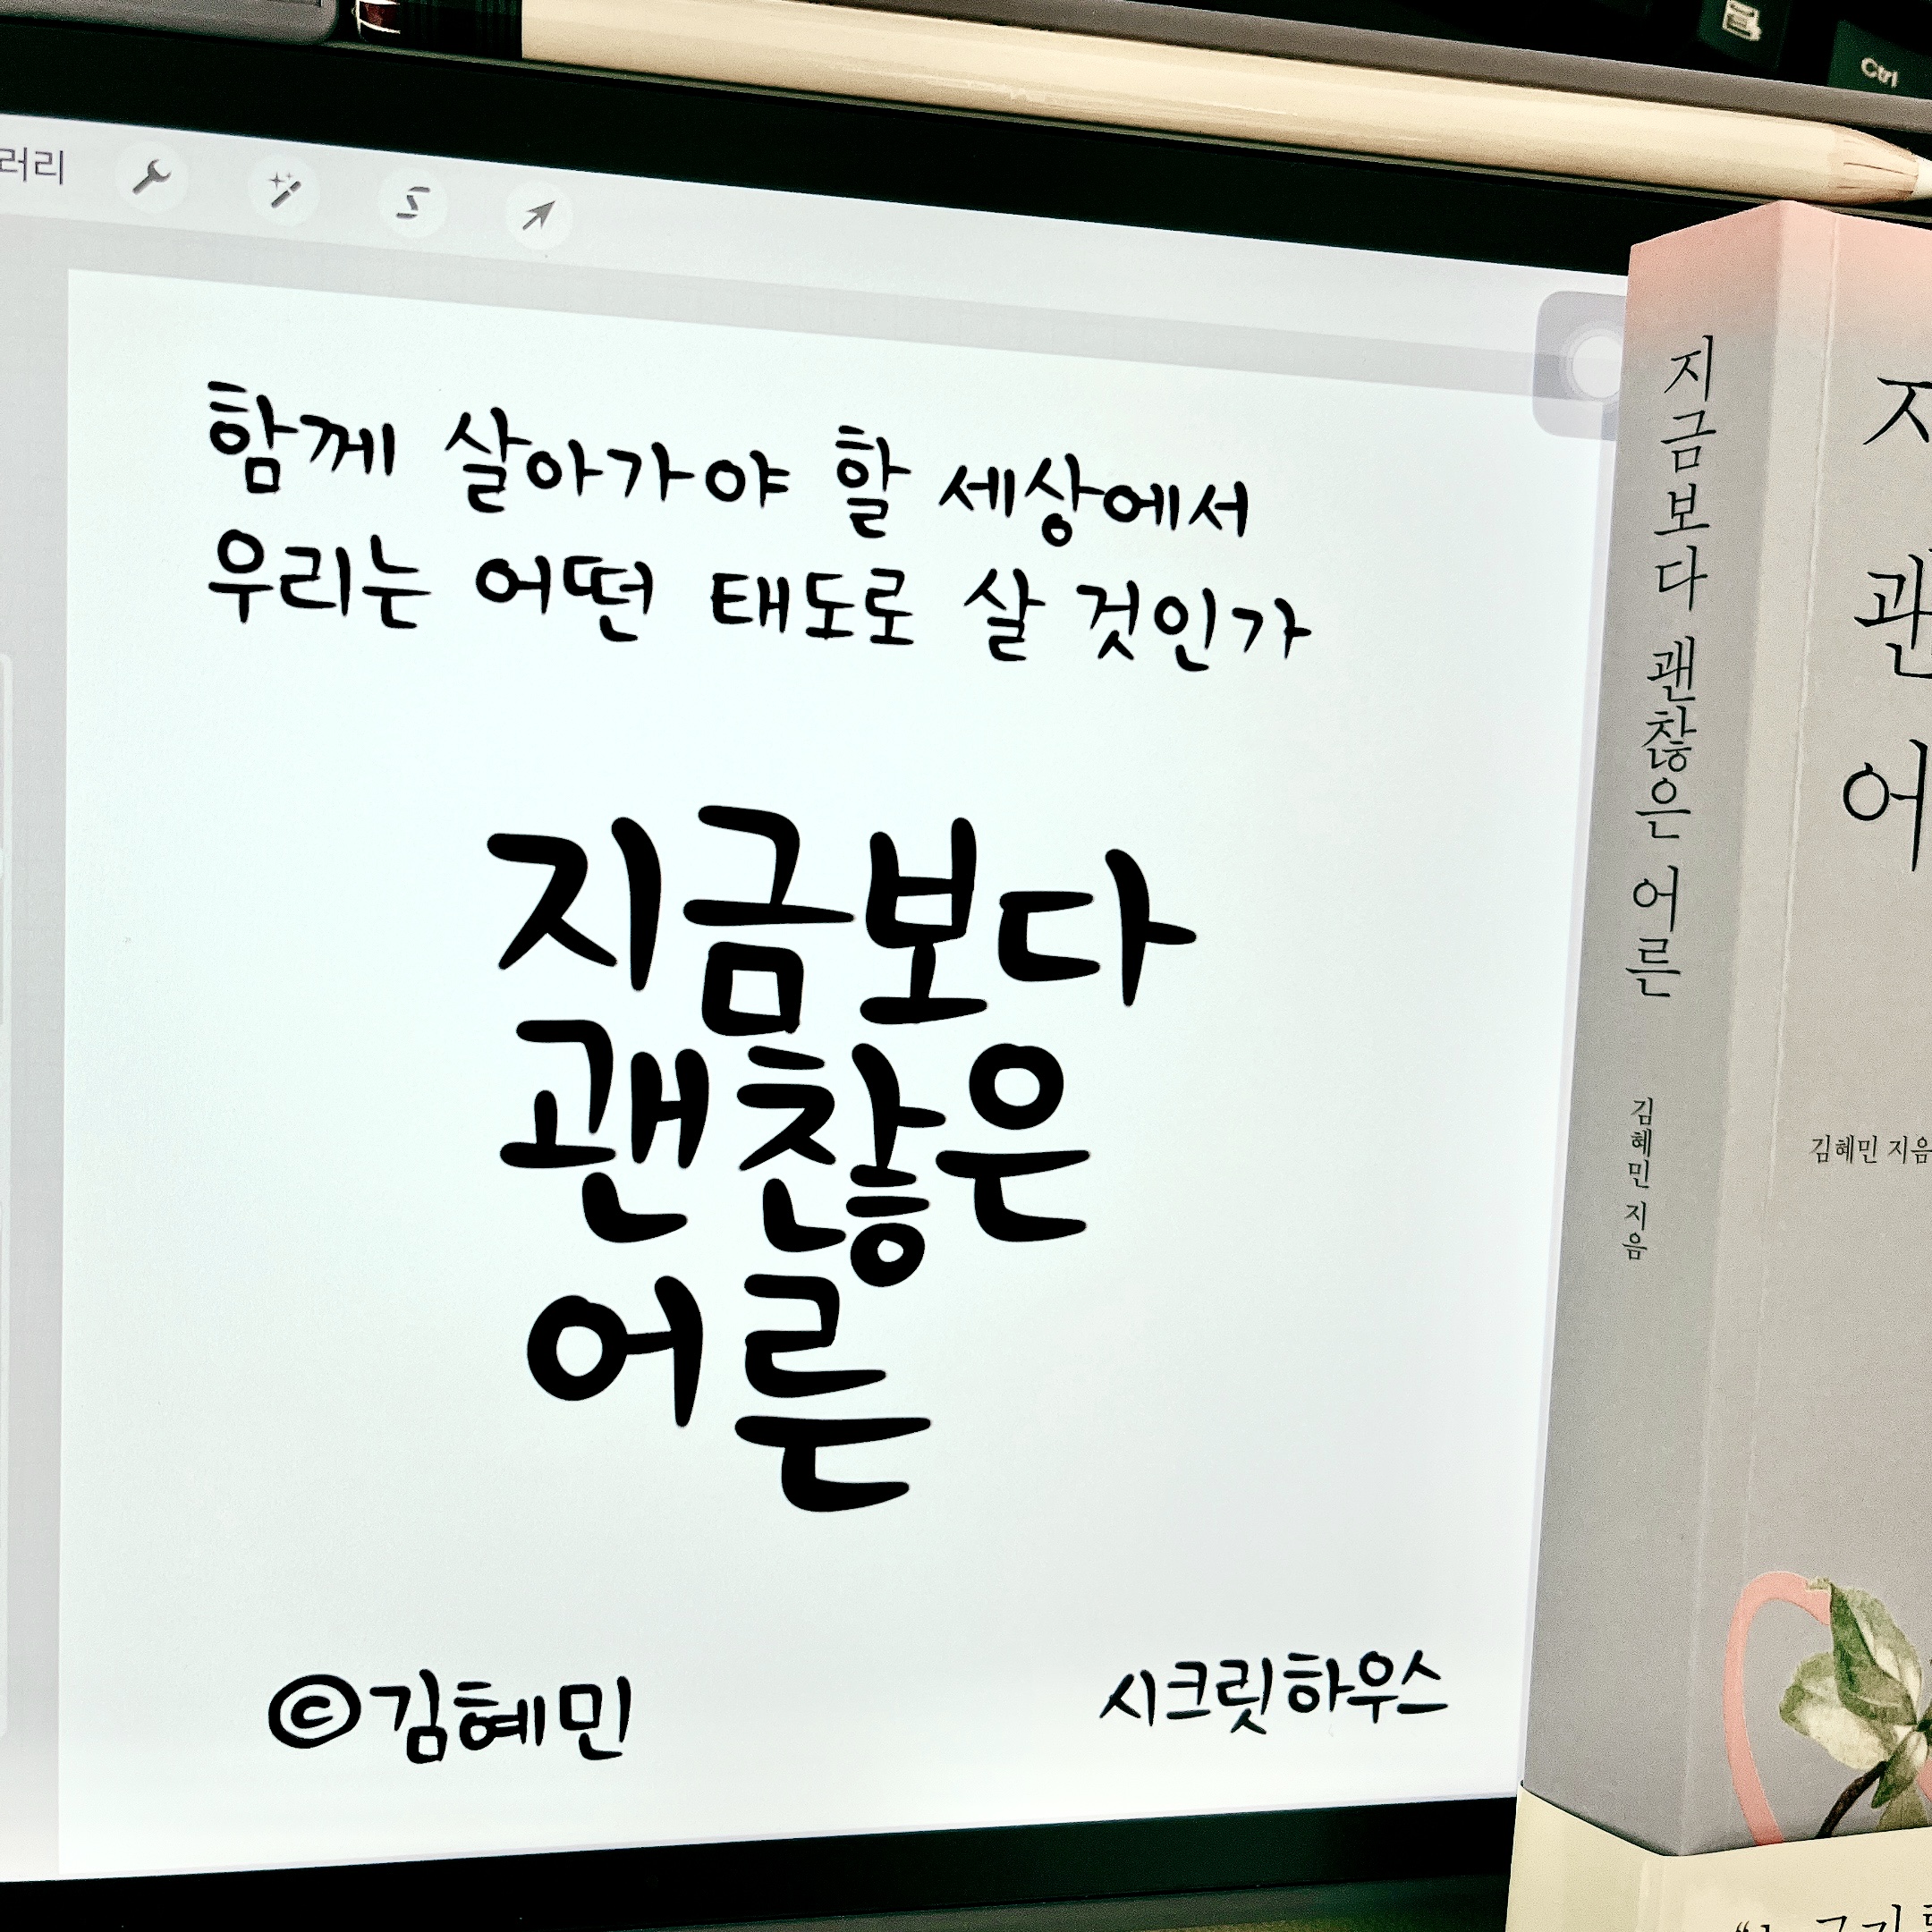 Ctrl
러리
함께 살아가야 할 세상에서
우리는 어떤 태도로 살 것인가
지금보다
괜찮은
어른
©김혜민
시크릿하우스
지금보다 괜찮은 어른
김혜민 지음
지
괜
어
김혜민 지음